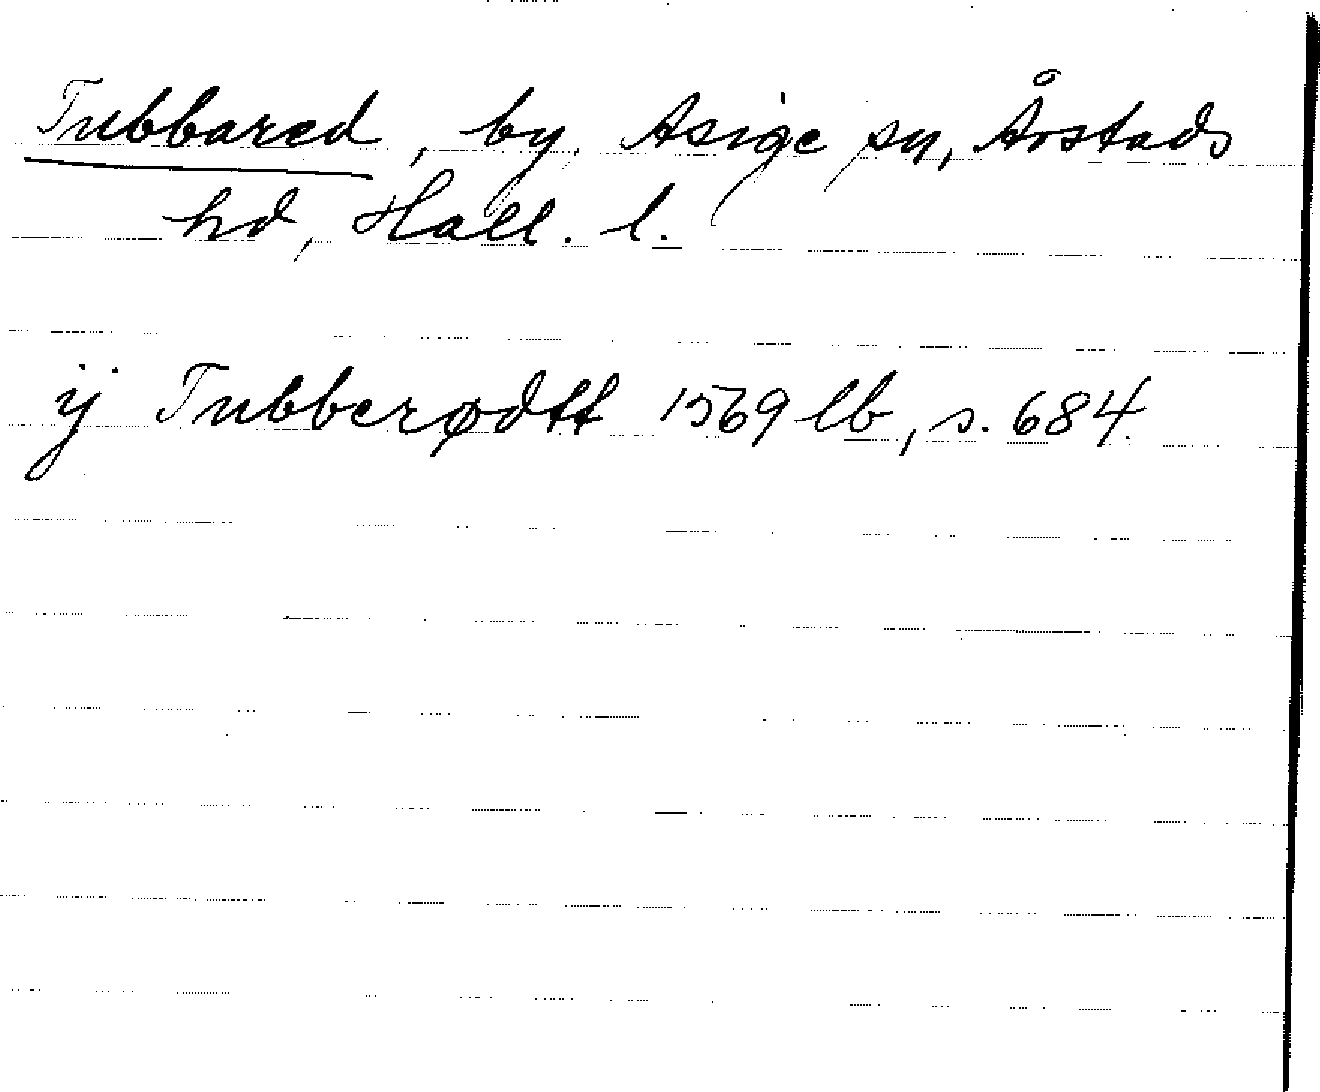 Tubbared, by, Asige sn, Årstads
hd, Hall. l.
ij Tubberødtt 1569 lb, s. 684.